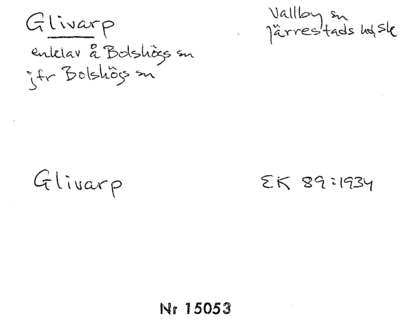 Glivarp
Vallby sn
Järrestads hd, Sk
enklav å Bolshögs sn
jfr Bolshögs sn
Glivarp
EK 89:1934
Nr 15053